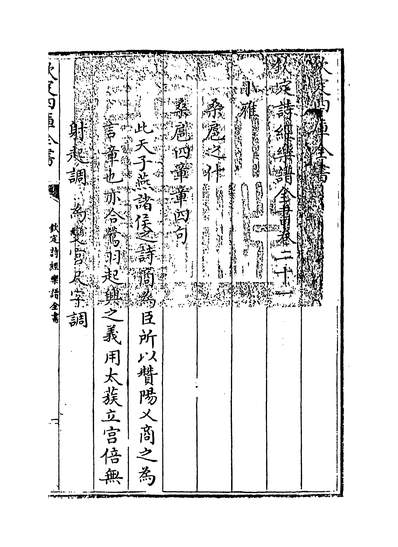 欽定四庫全書
欽定詩經樂譜全書卷二十一
小雅
桑扈之什
桑扈四章章四句
此天子燕諸侯之詩為臣所以贊陽乂商之為
言章也亦洽鷺羽起興之義用太蔟立宫倍無
射起調 為變宫尺字調
欽定四庫全書
欽定詩經樂譜全書